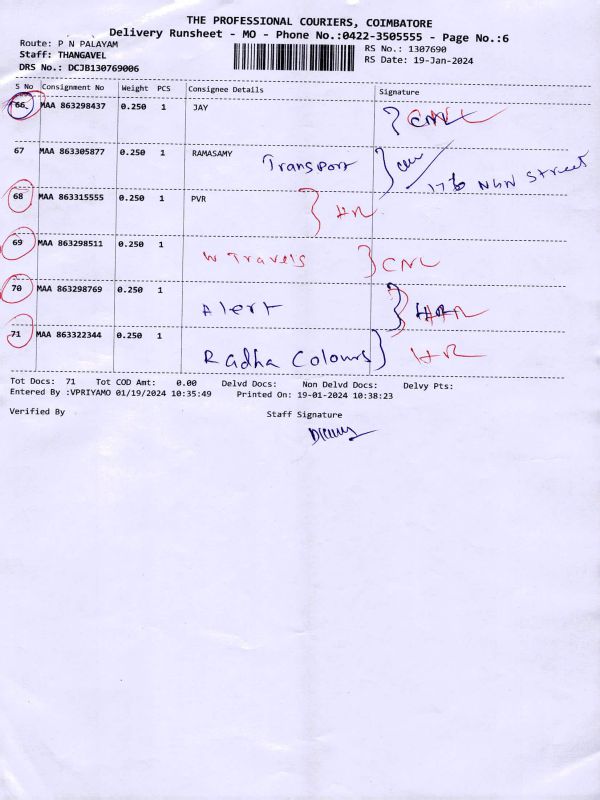 THE PROFESSIONAL COURIERS, COIMBATORE
Delivery Runsheet - MO - Phone No.:0422-3505555 - Page No.:6
Route: P N PALAYAM
RS No.: 1307690
Staff: THANGAVEL
RS Date: 19-Jan-2024
DRS No.: DCJB130769006
S No Consignment No Weight PCS Consignee Details Signature
66 MAA 863298437 0.250 1 JAY CNL
67 MAA 863305877 0.250 1 RAMASAMY Transport
Street
68 MAA 863315555 0.250 1 PVR HR
69 MAA 863298511 0.250 1
W Travels CNL
70 MAA 863298769 0.250 1
Alert
71 MAA 863322344 0.250 1
Radha Colours HR
Tot Docs: 71 Tot COD Amt: 0.00 Delvd Docs: Non Delvd Docs: Delvy Pts:
Entered By :VPRIYAMO 01/19/2024 10:35:49 Printed On: 19-01-2024 10:38:23
Verified By Staff Signature